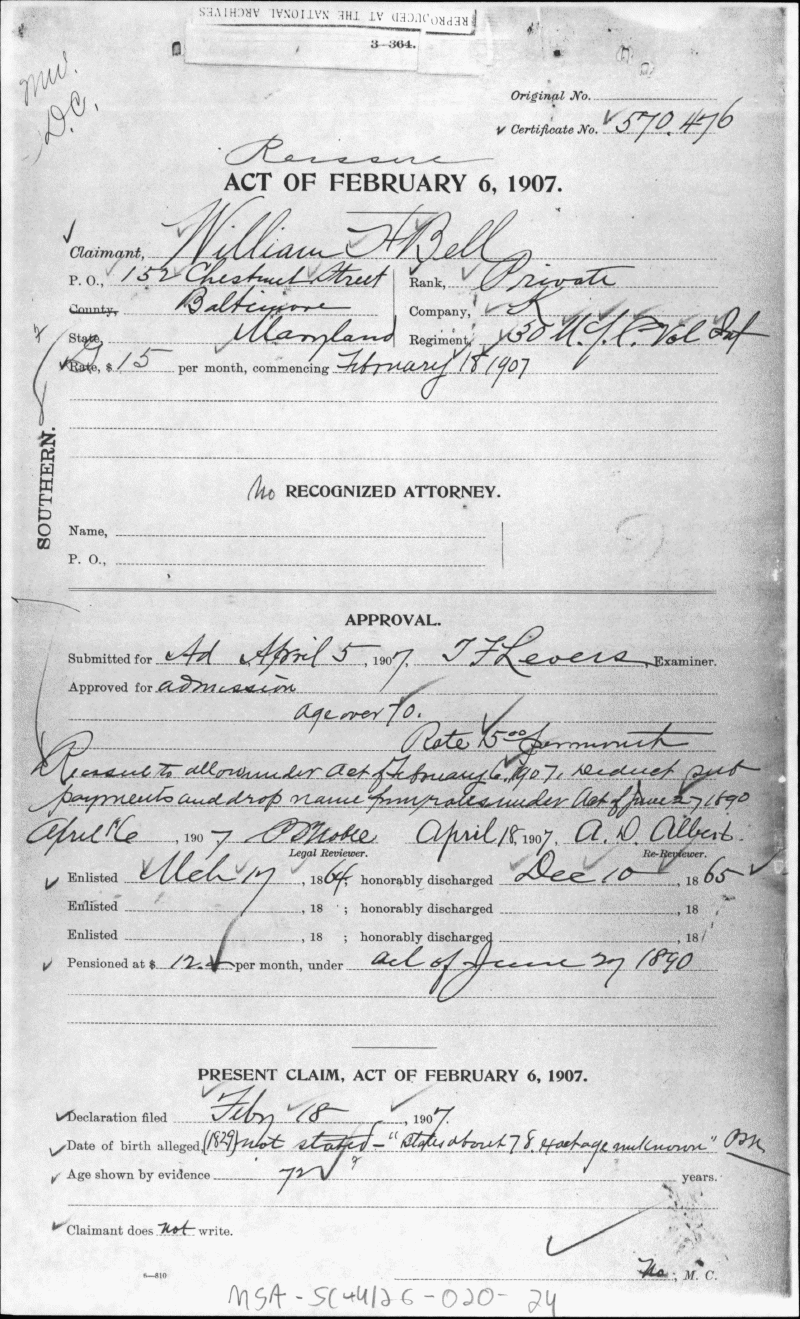 REPRODUCED AT THE NATIONAL ARCHIVES
3—364.
MW.
D.C.
Original No.
Certificate No. 570.476
Reissue
ACT OF FEBRUARY 6, 1907.
Claimant, William H Bell
P. O., 152 Chestnut Street
Rank, Private
County, Baltimore
Company, K
State, Maryland
Regiment, 30 U.S.C. Vol Inf
Rate, $ 15 per month, commencing February 18 1907
SOUTHERN.
No RECOGNIZED ATTORNEY.
Name,
P. O.,
APPROVAL.
Submitted for Ad April 5, 1907, T F Levers, Examiner.
Approved for admission
age over 70.
Rate 15 00 per month
Reissue to allow under Act of February 6, 1907, Deduct sub
payments and drop name from rolls under Act of June 27 1890
April 16, 1907 April 18, 1907, A. D. Albert.
Legal Reviewer. Re-Reviewer.
Enlisted Mch 17, 1864; honorably discharged Dec 10, 1865
Enlisted , 18 ; honorably discharged , 18
Enlisted , 18 ; honorably discharged , 18
Pensioned at $ 12. per month, under act of June 27 1890
PRESENT CLAIM, ACT OF FEBRUARY 6, 1907.
Declaration filed Feby 18, 1907.
Date of birth alleged, (1829) not stated – "States about 78, exact age unknown"
Age shown by evidence 72 years.
Claimant does not write.
6—810
No, M. C.
MSA - SC 4126 - 020 - 24